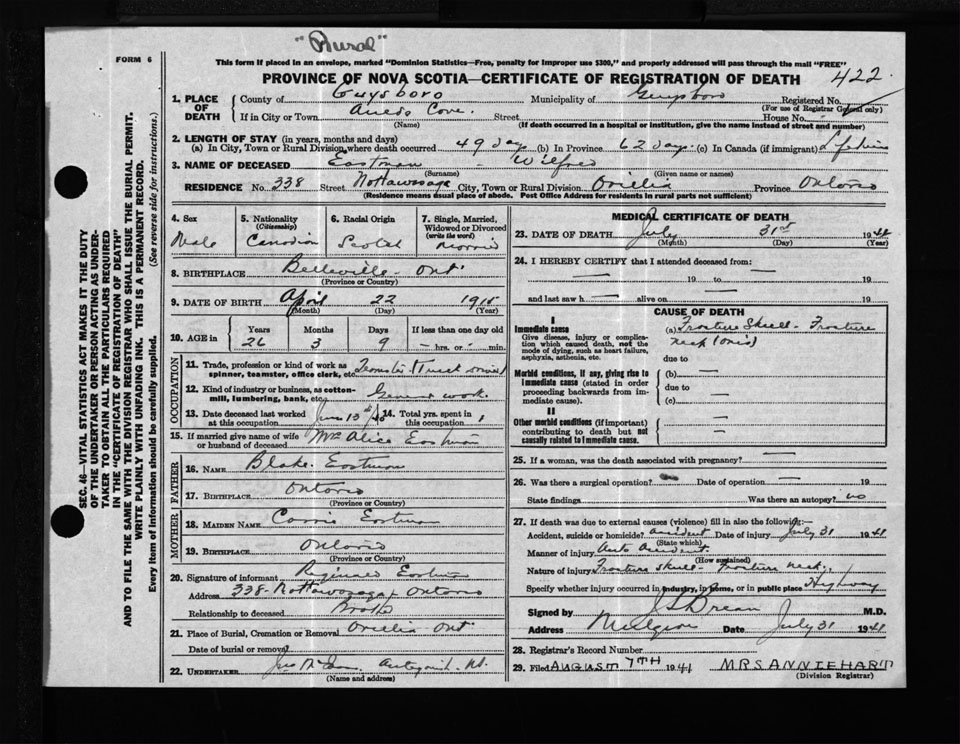 "Rural"
FORM 6
This form if placed in an envelope, marked "Dominion Statistics—Free, penalty for improper use $300," and properly addressed will pass through the mail "FREE"
PROVINCE OF NOVA SCOTIA—CERTIFICATE OF REGISTRATION OF DEATH
422
1. PLACE OF DEATH County of Guysboro Municipality of Guysboro Registered No.
(For use of Registrar General only)
If in City or Town Cove. Street House No.
(Name) (If death occurred in a hospital or institution, give the name instead of street and number)
2. LENGTH OF STAY (in years, months and days)
(a) In City, Town or Rural Division where death occurred 49 days (b) In Province 62 days. (c) In Canada (if immigrant)
3. NAME OF DECEASED Eastman - Wilfred
(Surname) (Given name or names)
RESIDENCE No. 338 Street Nottawasaga City, Town or Rural Division Orillia Province Ontario
(Residence means usual place of abode. Post Office Address for residents in rural parts not sufficient)
4. Sex Male
5. Nationality (Citizenship) Canadian
6. Racial Origin Scotch
7. Single, Married, Widowed or Divorced (write the word)
8. BIRTHPLACE Belleville - Ont.
(Province or Country)
9. DATE OF BIRTH April 22 1915
(Month) (Day) (Year)
10. AGE in Years 26 Months 3 Days 9 If less than one day old hrs. or min.
OCCUPATION
11. Trade, profession or kind of work as spinner, teamster, office clerk, etc. Teamster (Truck
12. Kind of industry or business, as cotton-mill, lumbering, bank, etc. General work
13. Date deceased last worked at this occupation
14. Total yrs. spent in this occupation
15. If married give name of wife or husband of deceased Mrs Alice Eastman
FATHER
16. NAME Blake Eastman
17. BIRTHPLACE Ontario
(Province or Country)
MOTHER
18. MAIDEN NAME Carrie Eastman
19. BIRTHPLACE Ontario
(Province or Country)
20. Signature of informant Reginald Eastman
Address 338 Nottawasaga Ontario
Relationship to deceased
21. Place of Burial, Cremation or Removal Orillia Ont
Date of burial or removal
22. UNDERTAKER
(Name and address)
MEDICAL CERTIFICATE OF DEATH
23. DATE OF DEATH July 31st 1941
(Month) (Day) (Year)
24. I HEREBY CERTIFY that I attended deceased from:
19 to 19
and last saw h alive on 19
CAUSE OF DEATH
I
Immediate cause
Give disease, injury or complication which caused death, not the mode of dying, such as heart failure, asphyxia, asthenia, etc.
(a) Fracture Skull - Fracture
neck
due to
Morbid conditions, if any, giving rise to immediate cause (stated in order proceeding backwards from immediate cause).
(b)
due to
(c)
II
Other morbid conditions (if important) contributing to death but not causally related to immediate cause.
25. If a woman, was the death associated with pregnancy?
26. Was there a surgical operation? Date of operation 19
State findings Was there an autopsy? no
27. If death was due to external causes (violence) fill in also the following:—
Accident, suicide or homicide? accident Date of injury July 31 1941
(State which)
Manner of injury Auto accident.
(How sustained)
Nature of injury Fracture skull - Fracture neck.
Specify whether injury occurred in industry, in home, or in public place Highway
Signed by M.D.
Address Date July 31 1941
28. Registrar's Record Number
29. Filed AUGUST 7TH 1941 MRS ANNIE HART
(Division Registrar)
SEC. 46—VITAL STATISTICS ACT MAKES IT THE DUTY
OF THE UNDERTAKER OR PERSON ACTING AS UNDER-
TAKER TO OBTAIN ALL THE PARTICULARS REQUIRED
IN THE "CERTIFICATE OF REGISTRATION OF DEATH"
AND TO FILE THE SAME WITH THE DIVISION REGISTRAR WHO SHALL ISSUE THE BURIAL PERMIT.
WRITE PLAINLY WITH UNFADING INK. THIS IS A PERMANENT RECORD.
Every item of information should be carefully supplied. (See reverse side for instructions.)